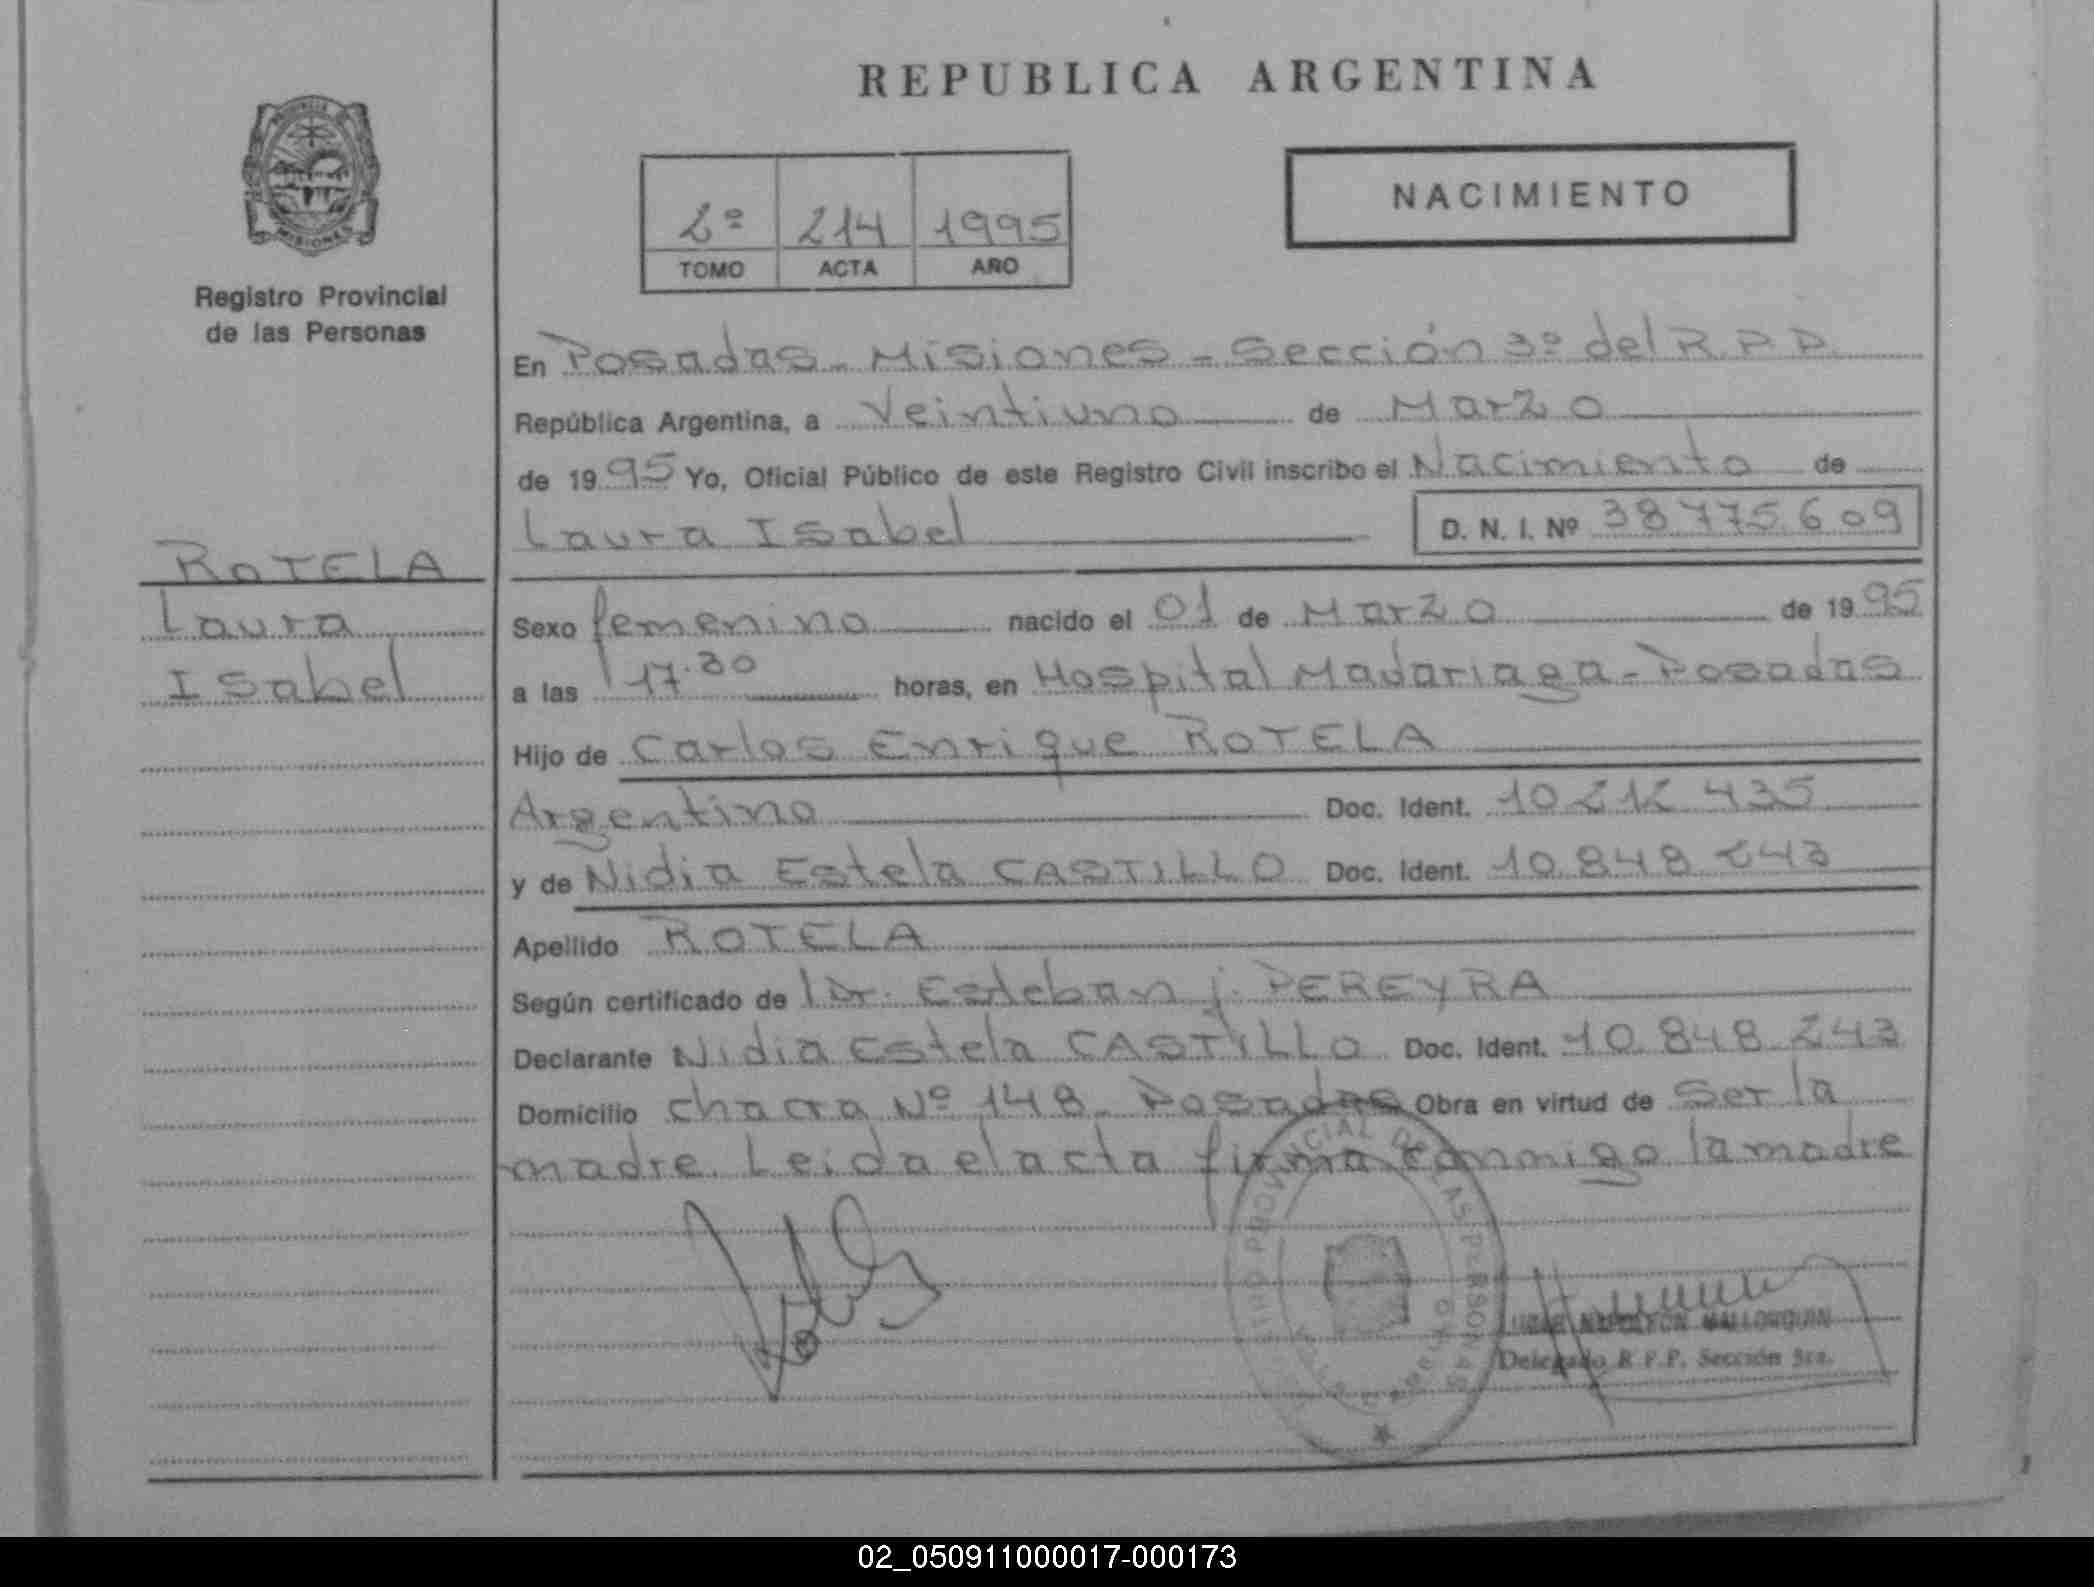 REPUBLICA ARGENTINA
MISIONES
Registro Provincial
de las Personas
2º 214 1995
TOMO ACTA AÑO
NACIMIENTO
En Posadas - Misiones - Sección 3º del R.P.P.
República Argentina, a Veintiuno de Marzo
de 1995 Yo, Oficial Público de este Registro Civil inscribo el Nacimiento de
Laura Isabel D. N. I. Nº 38775609
ROTELA
Laura
Isabel
Sexo femenino nacido el 01 de Marzo de 1995
a las 17.30 horas, en Hospital Madariaga - Posadas
Hijo de Carlos Enrique ROTELA
Argentino Doc. Ident. 10 212 435
y de Nidia Estela CASTILLO Doc. Ident. 10.848 243
Apellido ROTELA
Según certificado de Dr. Esteban J. PEREYRA
Declarante Nidia Estela CASTILLO Doc. Ident. 10.848.243
Domicilio chacra Nº 148 Posadas Obra en virtud de Ser la
madre. Leida el acta firma conmigo la madre
PROVINCIAL DE LAS PERSONAS
NAPOLEON MALLORQUIN
Delegado R.P.P. Sección 3ra.
02_050911000017-000173